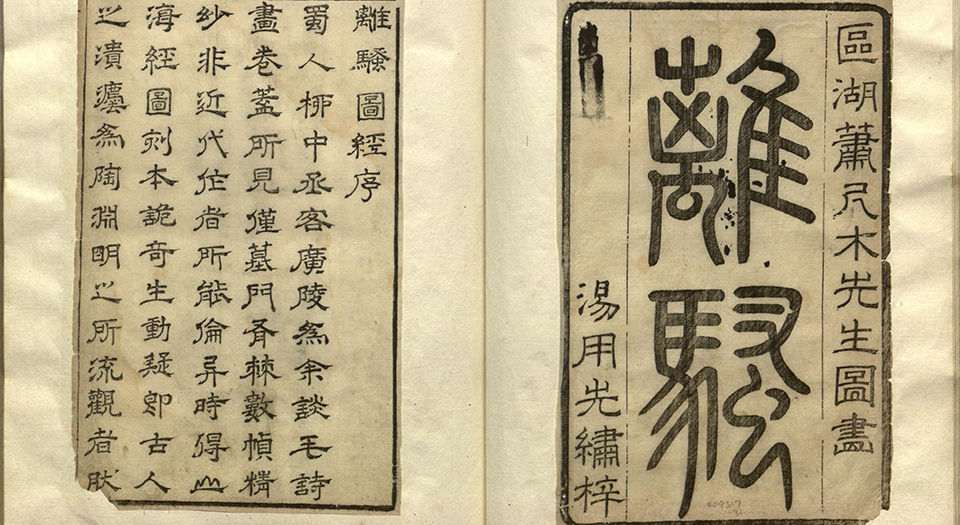 區湖蕭尺木先生圖畫
離騷
湯用先繡梓
離騷圖經序
蜀人柳中丞客廣陵爲余談毛詩
畫卷蓋所見僅墓門斧棘數幀精
妙非近代作者所能倫異時得山
海經圖刻本詭奇生動疑卽古人
之爲陶淵明之所流觀者肰